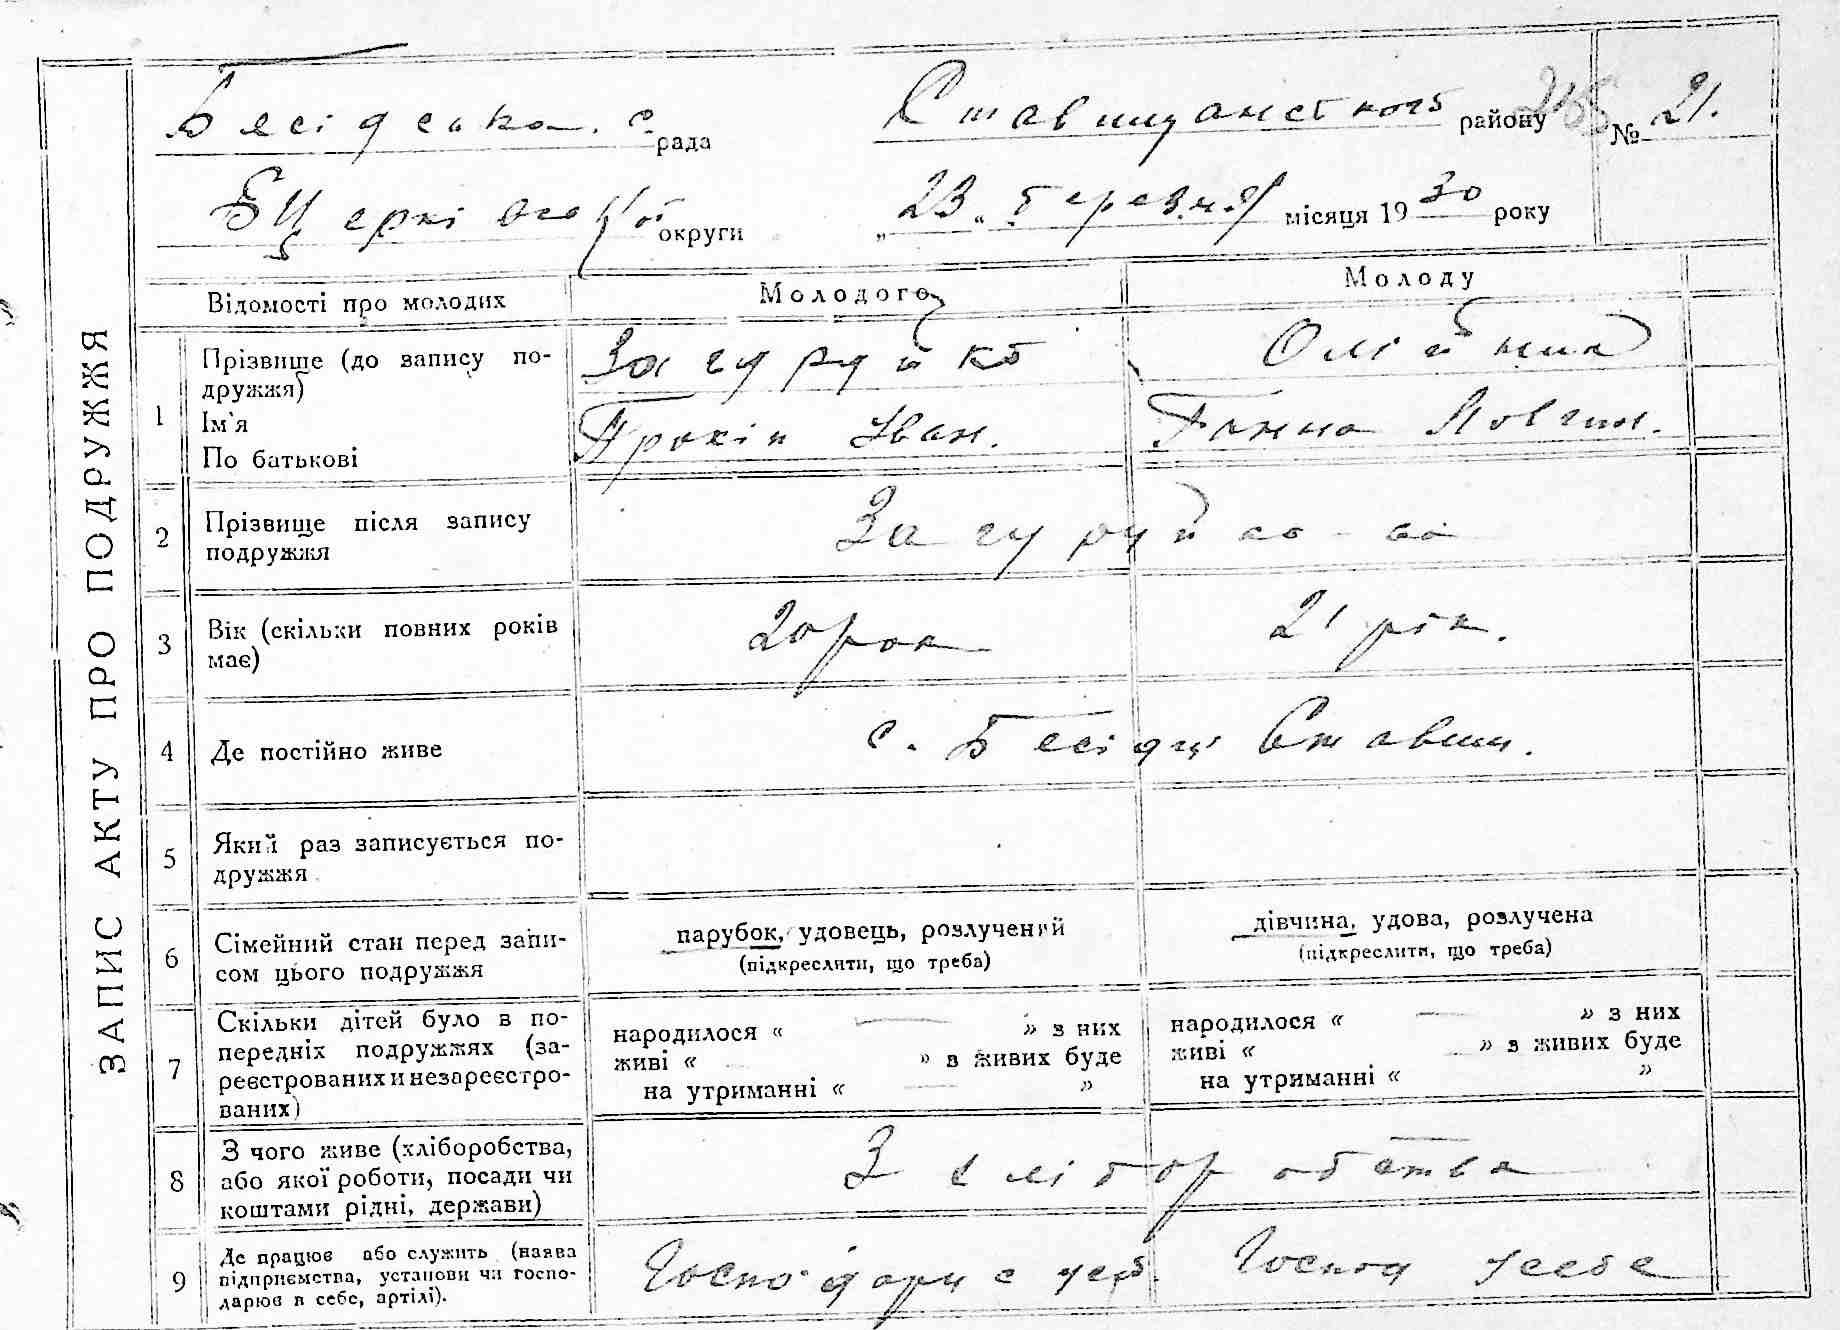 ЗАПИС АКТУ ПРО ПОДРУЖЖЯ
Бесідська с. рада Ставищанського району № 21.
БЦерківської округи „23„ березня місяця 1930 року
Відомості про молодих Молодого Молоду
1 Прізвище (до запису подружжя) Загуруйко Олійник
Ім'я
По батькові Прокіп Іван. Ганна
2 Прізвище після запису подружжя Загуруйко - ко
3 Вік (скільки повних років має) 20 рок 21 рік.
4 Де постійно живе с. Бесідці Ставищ.
5 Який раз записується подружжя
6 Сімейний стан перед записом цього подружжя парубок, удовець, розлучений дівчина, удова, розлучена
(підкреслити, що треба) (підкреслити, що треба)
7 Скільки дітей було в попередніх подружжях (зареєстрованих и незареєстрованих) народилося « — » з них народилося « — » з них
живі « » з живих буде живі « » з живих буде
на утриманні « — » на утриманні « »
8 З чого живе (хліборобства, або якої роботи, посади чи коштами рідні, держави) З хліборобства
9 Де працює або служить (назва підприємства, установи чи господарює в себе, артілі). Господарює у себе Господ у себе